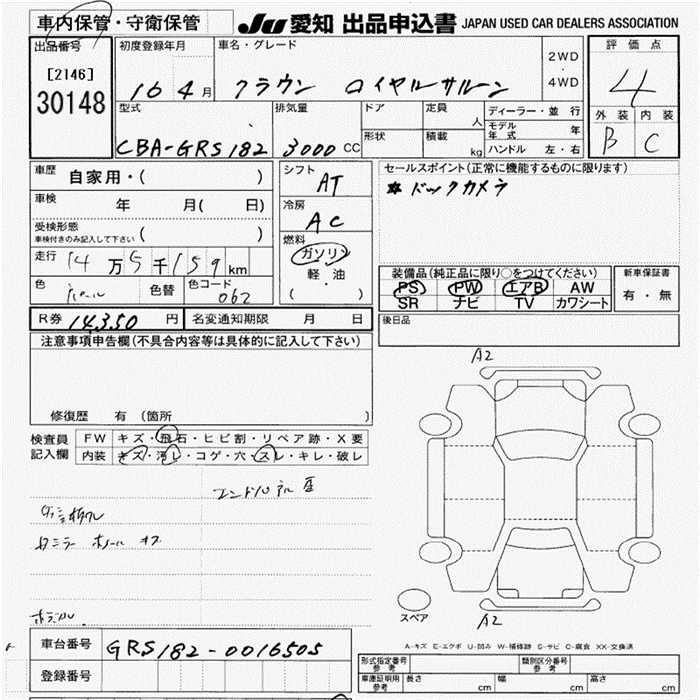 車内保管・守衛保管
Ju 愛知 出品申込書 JAPAN USED CAR DEALERS ASSOCIATION
出品番号
[2146]
30148
初度登録年月
16 4月
車名・グレード
クラウン ロイヤルサルーン
2WD
・
4WD
評価点
4
外装 内装
B C
型式
CBA-GRS182
排気量
3000 CC
ドア
定員
人
形状
積載
kg
ディーラー・並行
モデル年式 年
ハンドル 左・右
車歴
自家用・( )
車検
年 月( 日)
受検形態
車検付きのみ記入して下さい ( )
走行 14万5千159km
色
パール
色替
色コード
062
シフト
AT
冷房
AC
燃料
ガソリン
軽・油
( )
セールスポイント(正常に機能するものに限ります)
*ドックカメラ
装備品(純正品に限り○をつけてください)
PS PW エアB AW
SR ナビ TV カワシート
新車保証書
有・無
R券 14,350 円
名変通知期限 月 日
後日品
注意事項申告欄(不具合内容等は具体的に記入して下さい)
修復歴 有 (箇所 )
検査員
記入欄
FW キズ・飛石・ヒビ割・リペア跡・X要
内装 キズ・汚レ・コゲ・穴・スレ・キレ・破レ
A2
スペア
A2
車台番号 GRS182-0016505
登録番号
A-キズ E-エクボ U-凹み W-補修跡 S-サビ C-腐食 XX-交換済
形式指定番号
参考
類別区分番号
参考
車庫証明用
参考
長さ cm
幅 cm
高さ cm